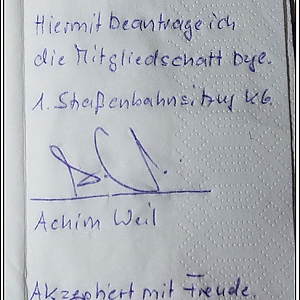 Hiermit beantrage ich
die Mitgliedschaft
1. Staßenbahnsitzug KG.
Achim Weil
Akzeptiert mit Freude.